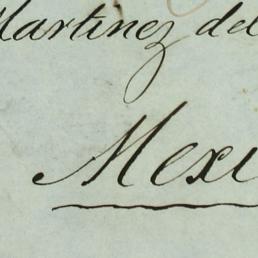 Martinez del
Mexi